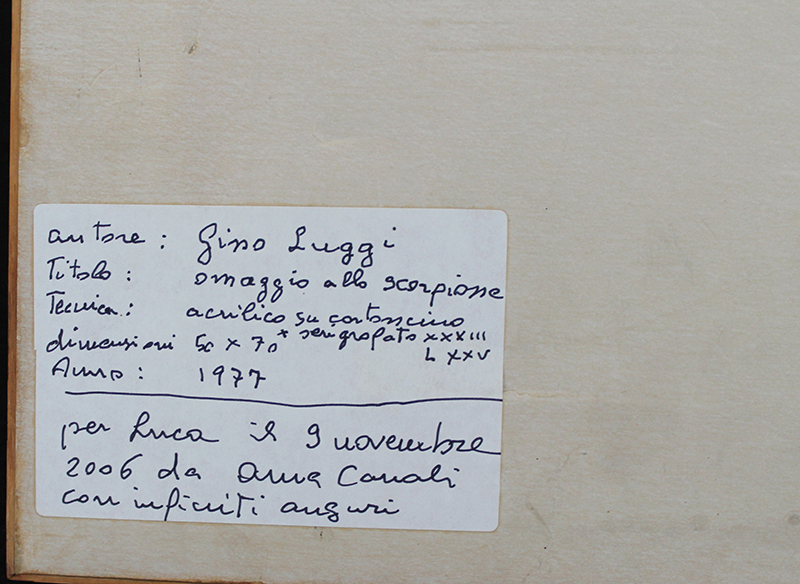 autore : Gino Luggi
Titolo : omaggio allo scorpione
Tecnica : acrilico su cartoncino
dimensioni 50 x 70 * serigrafato xxxiii
L xxv
Anno : 1977
per Luca il 9 novembre
2006 da Anna Canali
con infiniti auguri